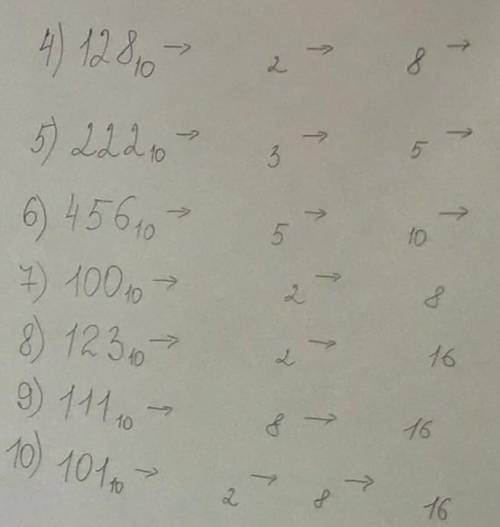 4) 128₁₀ → ₂ → ₈ →
5) 222₁₀ → ₃ → ₅ →
6) 456₁₀ → ₅ → ₁₀ →
7) 100₁₀ → ₂ → ₈
8) 123₁₀ → ₂ → ₁₆
9) 111₁₀ → ₈ → ₁₆
10) 101₁₀ → ₂ → ₈ → ₁₆